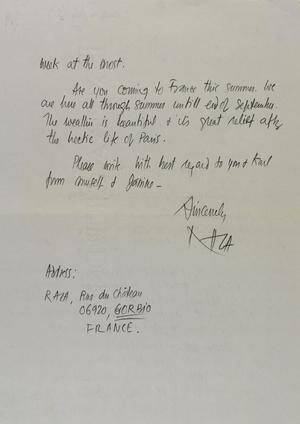 week at the most.
Are you coming to France this summer. We
are here all through summer untill end of September.
The weather is beautiful & its great relief after
the hectic life of Paris.
Please write. With best regard to you &
from myself &
Sincerely
RAZA
Address:
RAZA, Rue du Château
06920, GORBIO
FRANCE.